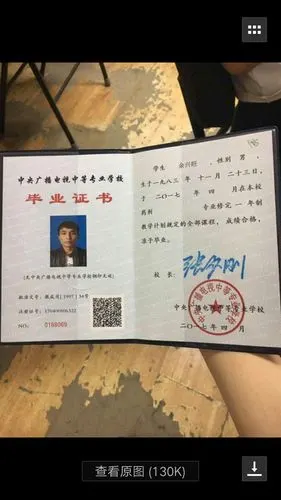 中央广播电视中等专业学校
毕业证书
(无中央广播电视中等专业学校钢印无效)
批准文号：
注册证号：
NO: 0168069
学生 余兴旺，性别 男，
生于一九八三年 十一月 二十三日，
于二〇一七年 四月在本校
药剂 专业修完 一 年制
教学计划规定的全部课程，成绩合格，
准予毕业。
校长：
中央广播电视中等专业学校
二〇一七年四月
中央广播电视中等专业学校
查看原图 (130K)